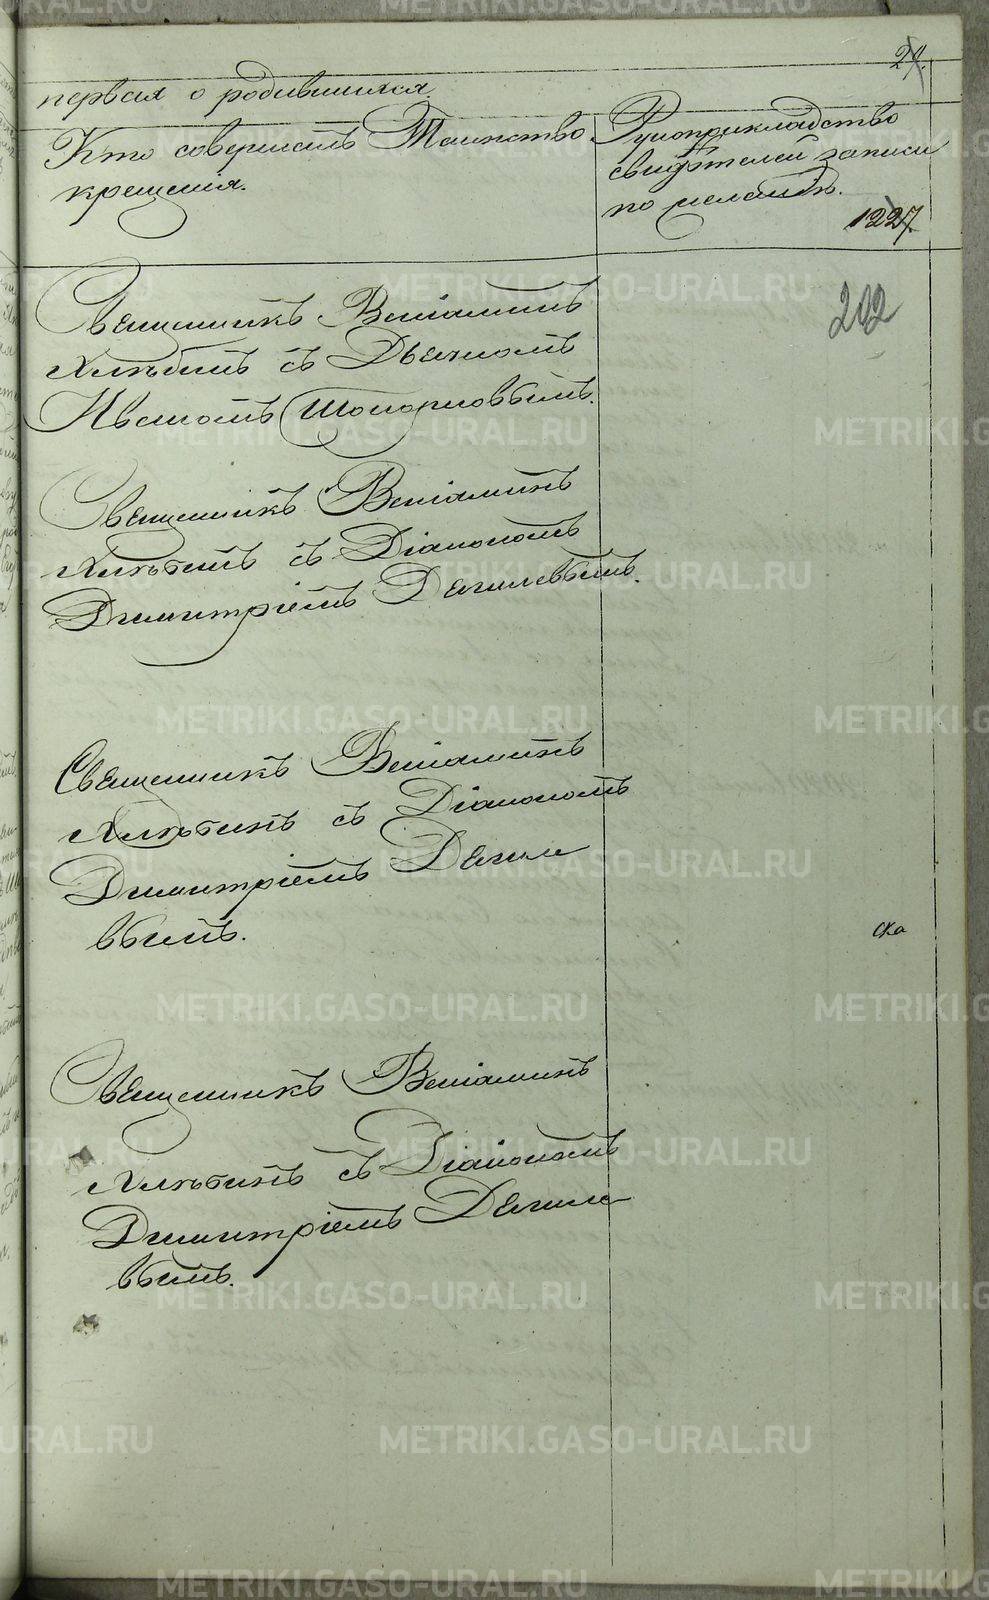 24.
первая о родившихся.
Кто совершалъ Таинство
крещенія.
Рукоприкладство
свидѣтелей записи
по желанію.
1227.
202
Священникъ Веніаминъ
Хлѣбинъ съ Дьячкомъ
Иваномъ Топорковымъ.
Священникъ Веніаминъ
Хлѣбинъ съ Діакономъ
Димитріемъ Дягилевымъ.
Священникъ Веніаминъ
Хлѣбинъ съ Діакономъ
Димитріемъ Дягиле
вымъ.
Священникъ Веніаминъ
Хлѣбинъ съ Діакономъ
Димитріемъ Дягиле
вымъ.
METRIKI.GASO-URAL.RU